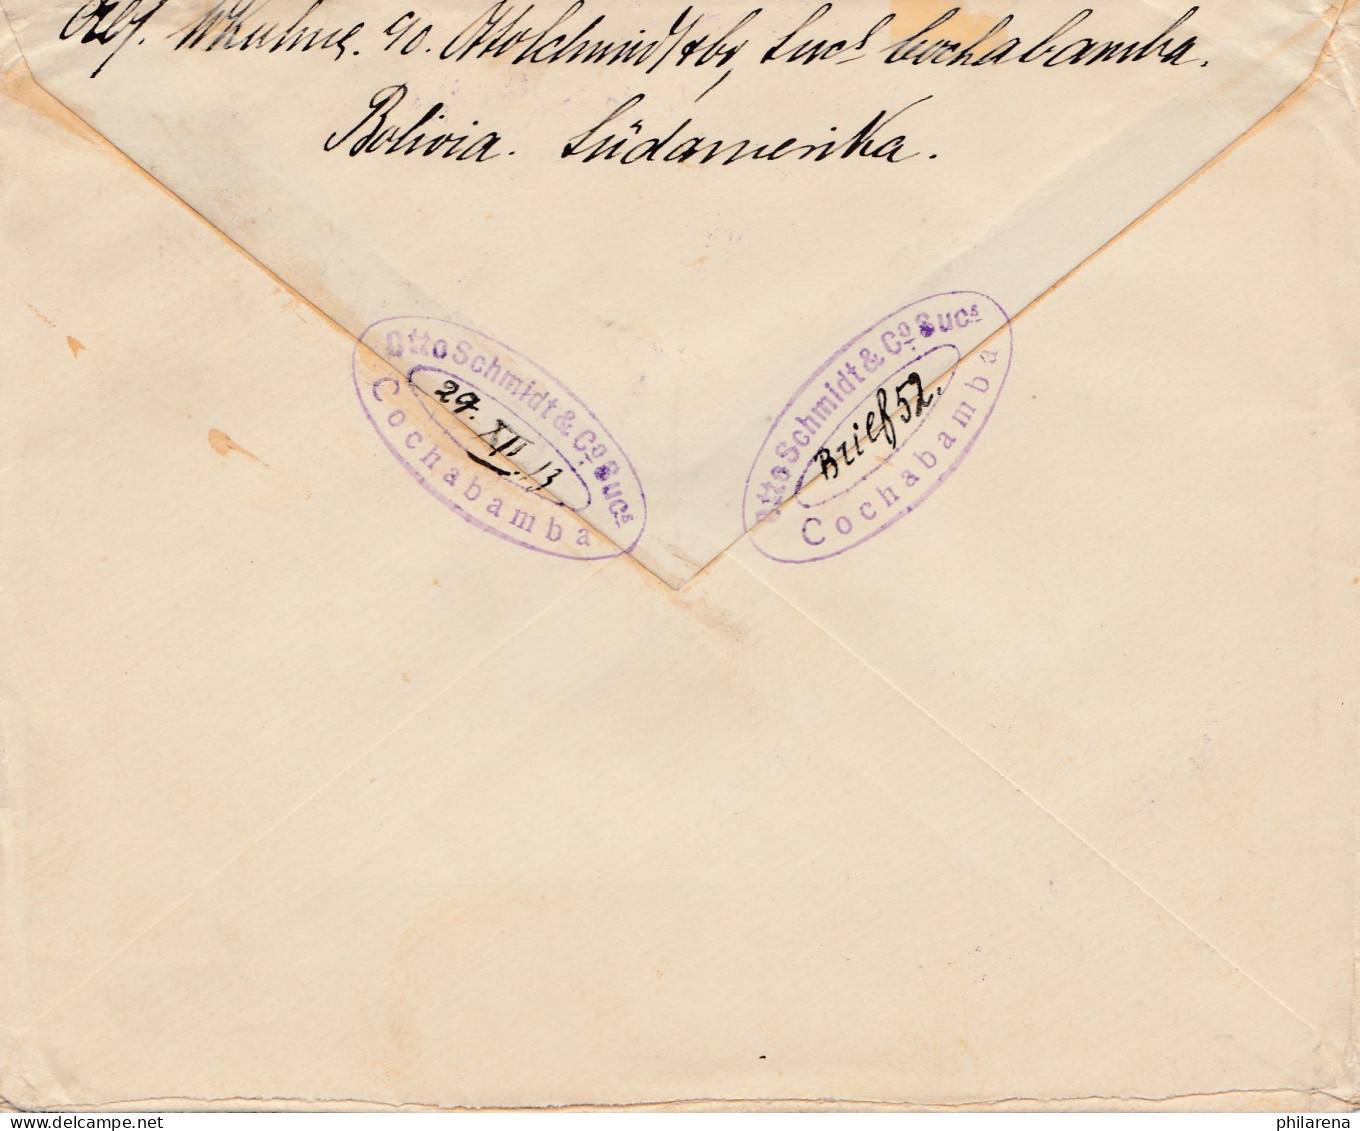 Abs. W Kuhne. co. Otto Schmidt & Co, Sucs Cochabamba.
Bolivia. Südamerika.
Otto Schmidt & Co. Sucs.
29. XII. 13
Cochabamba
Otto Schmidt & Co. Sucs.
Brief 52.
Cochabamba
philarena